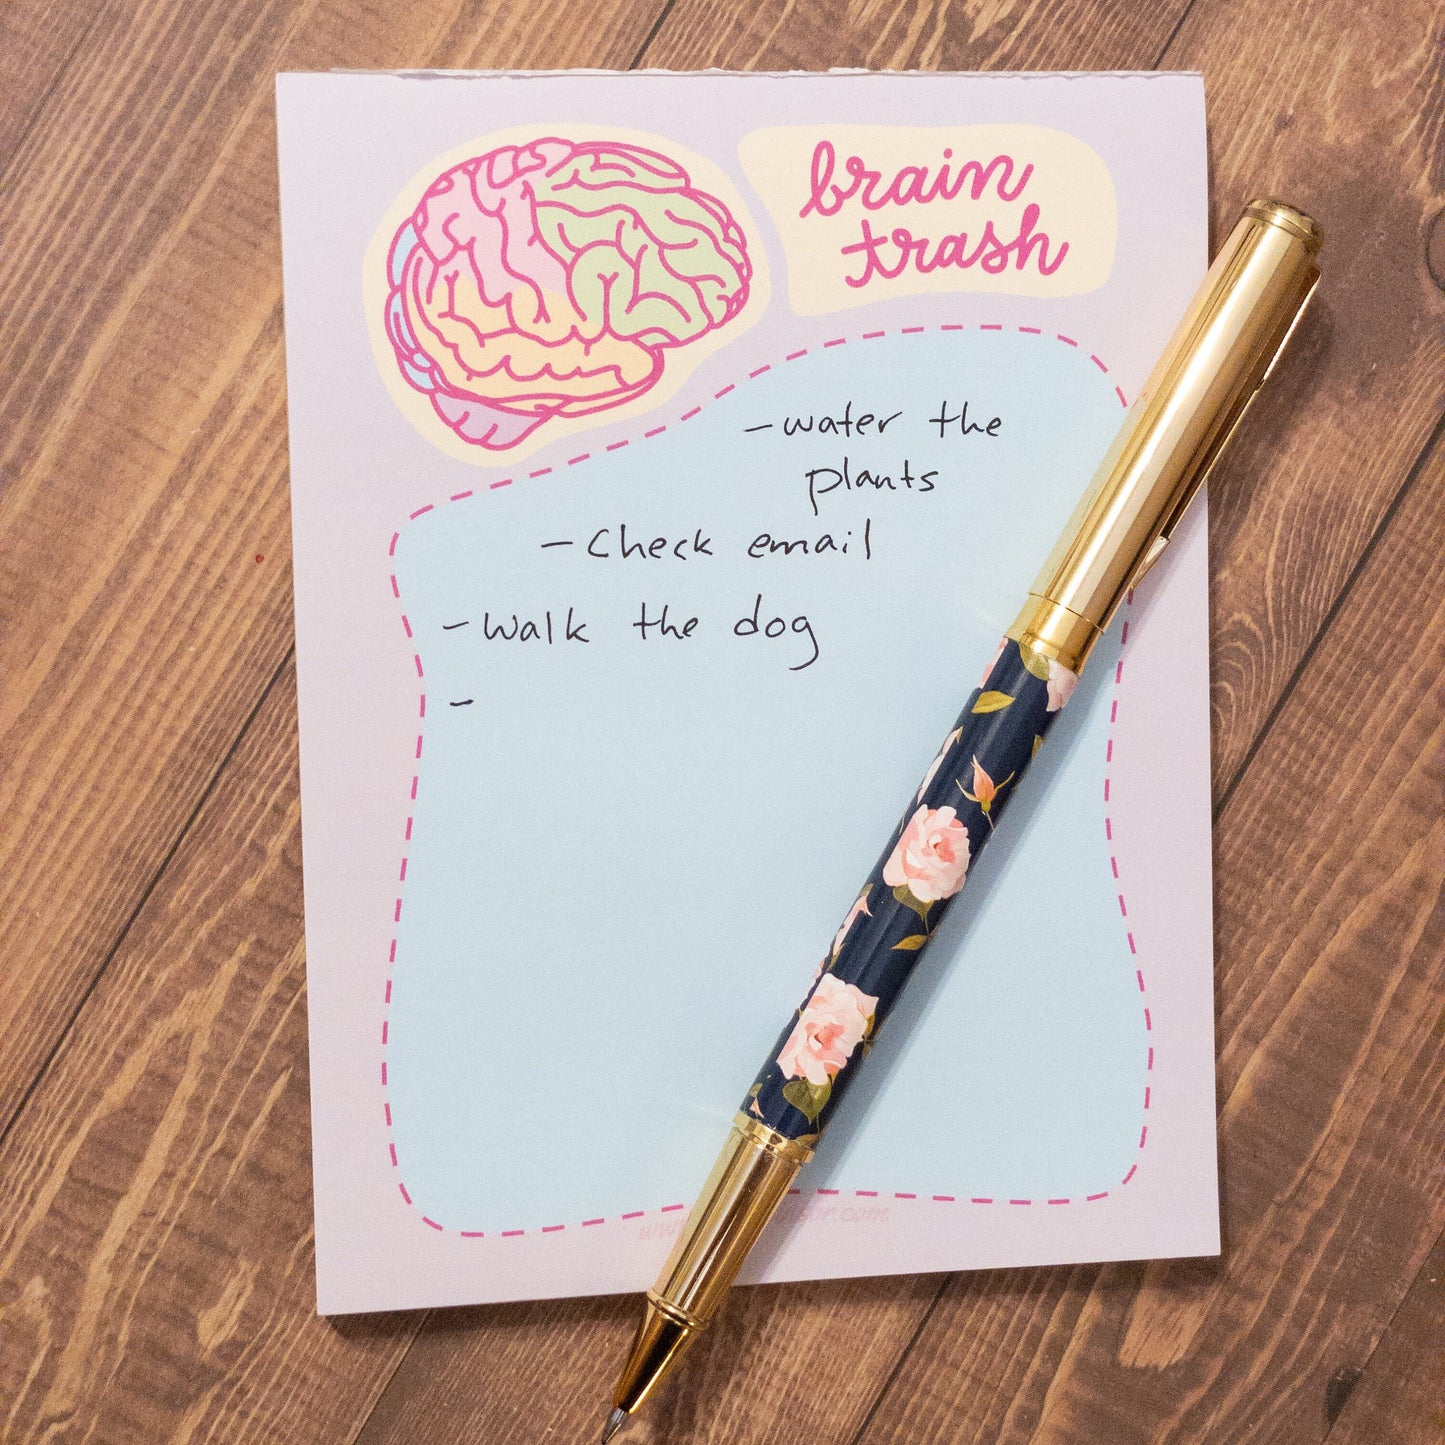 brain
trash
- water the
plants
- Check email
- Walk the dog
-